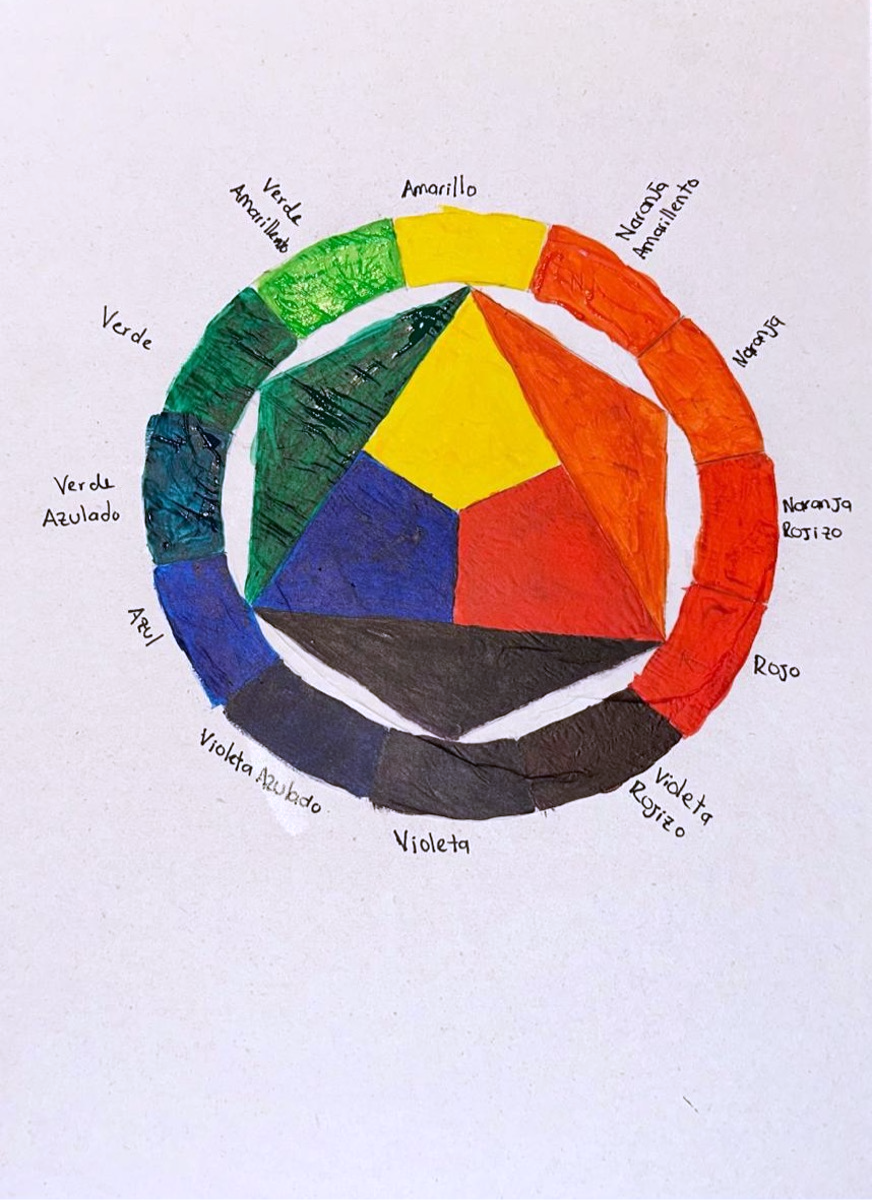 Amarillo
Naranja
Amarillento
Naranja
Naranja
Rojizo
Rojo
Violeta
Rojizo
Violeta
Violeta Azulado
Azul
Verde
Azulado
Verde
Verde
Amarillento